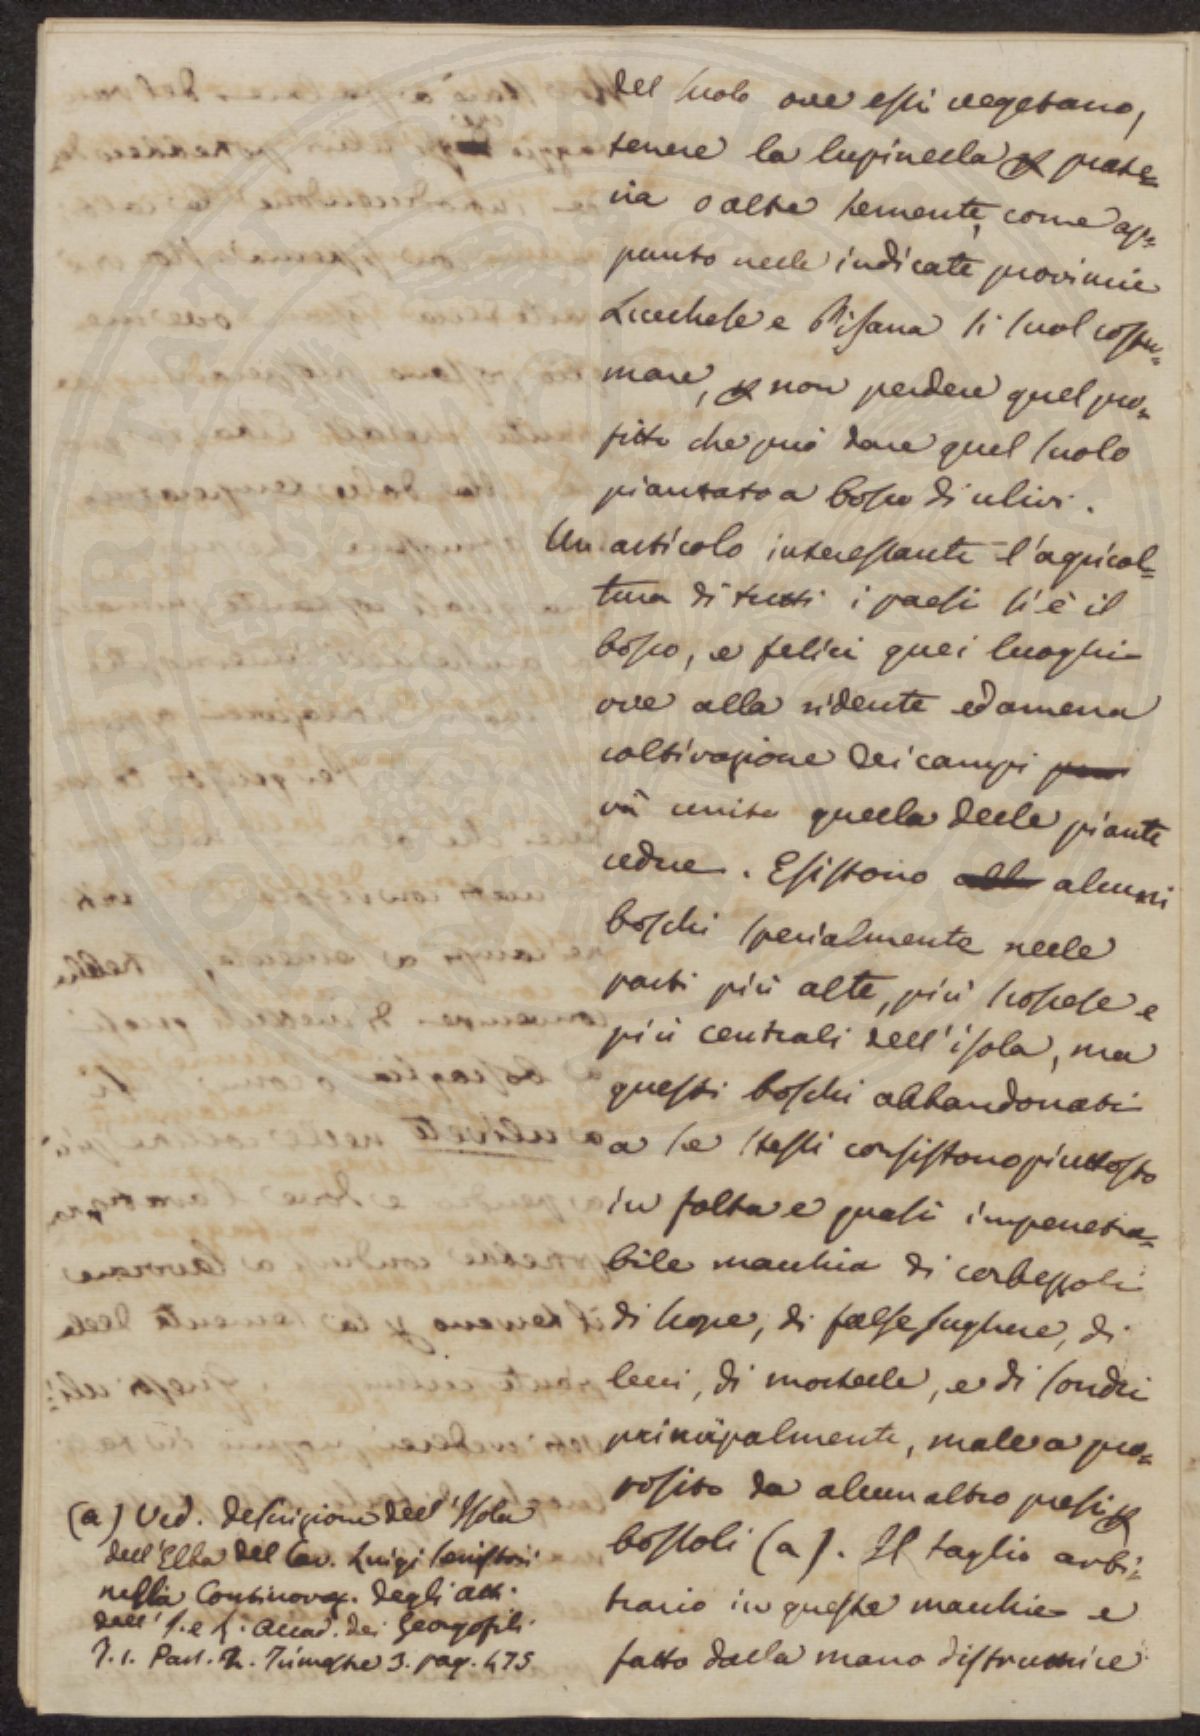 del suolo ove essi vegetano,
tenere la lupinella p prate=
ria o altre semente, come ap=
punto nelle indicate provincie
Lucchese e Pisana si suol costu=
mare, p non perdere quel pro=
fitto che può dare quel suolo
piantato a bosco di ulivi.
Un articolo interessante l'agricol=
tura di tutti i paesi si è il
bosco, e felici quei luoghi
ove alla ridente ed amena
coltivazione dei campi
và unita quella delle piante
cedue. Esistono alcuni
boschi specialmente nelle
parti più alte, più scoscese e
più centrali dell'isola, ma
questi boschi abbandonati
a se stessi consistono piuttosto
in folta e quasi impenetra=
bile macchia di corbezzoli
di scope, di false sughere, di
lecci, di mortelle, e di sondri
principalmente, male a pro=
posito da alcun altro presi p
bossoli (a). Il taglio arbi=
trario in queste macchie e
fatto dalla mano distruttrice
(a) Ved. descrizione dell'Isola
dell'Elba del Cav. Luigi Seristori
nella Continovaz. degli atti
dell'I. e R. Accad. dei Georgofili
T. 1. Part. 2. Trimestre 3. pag. 475